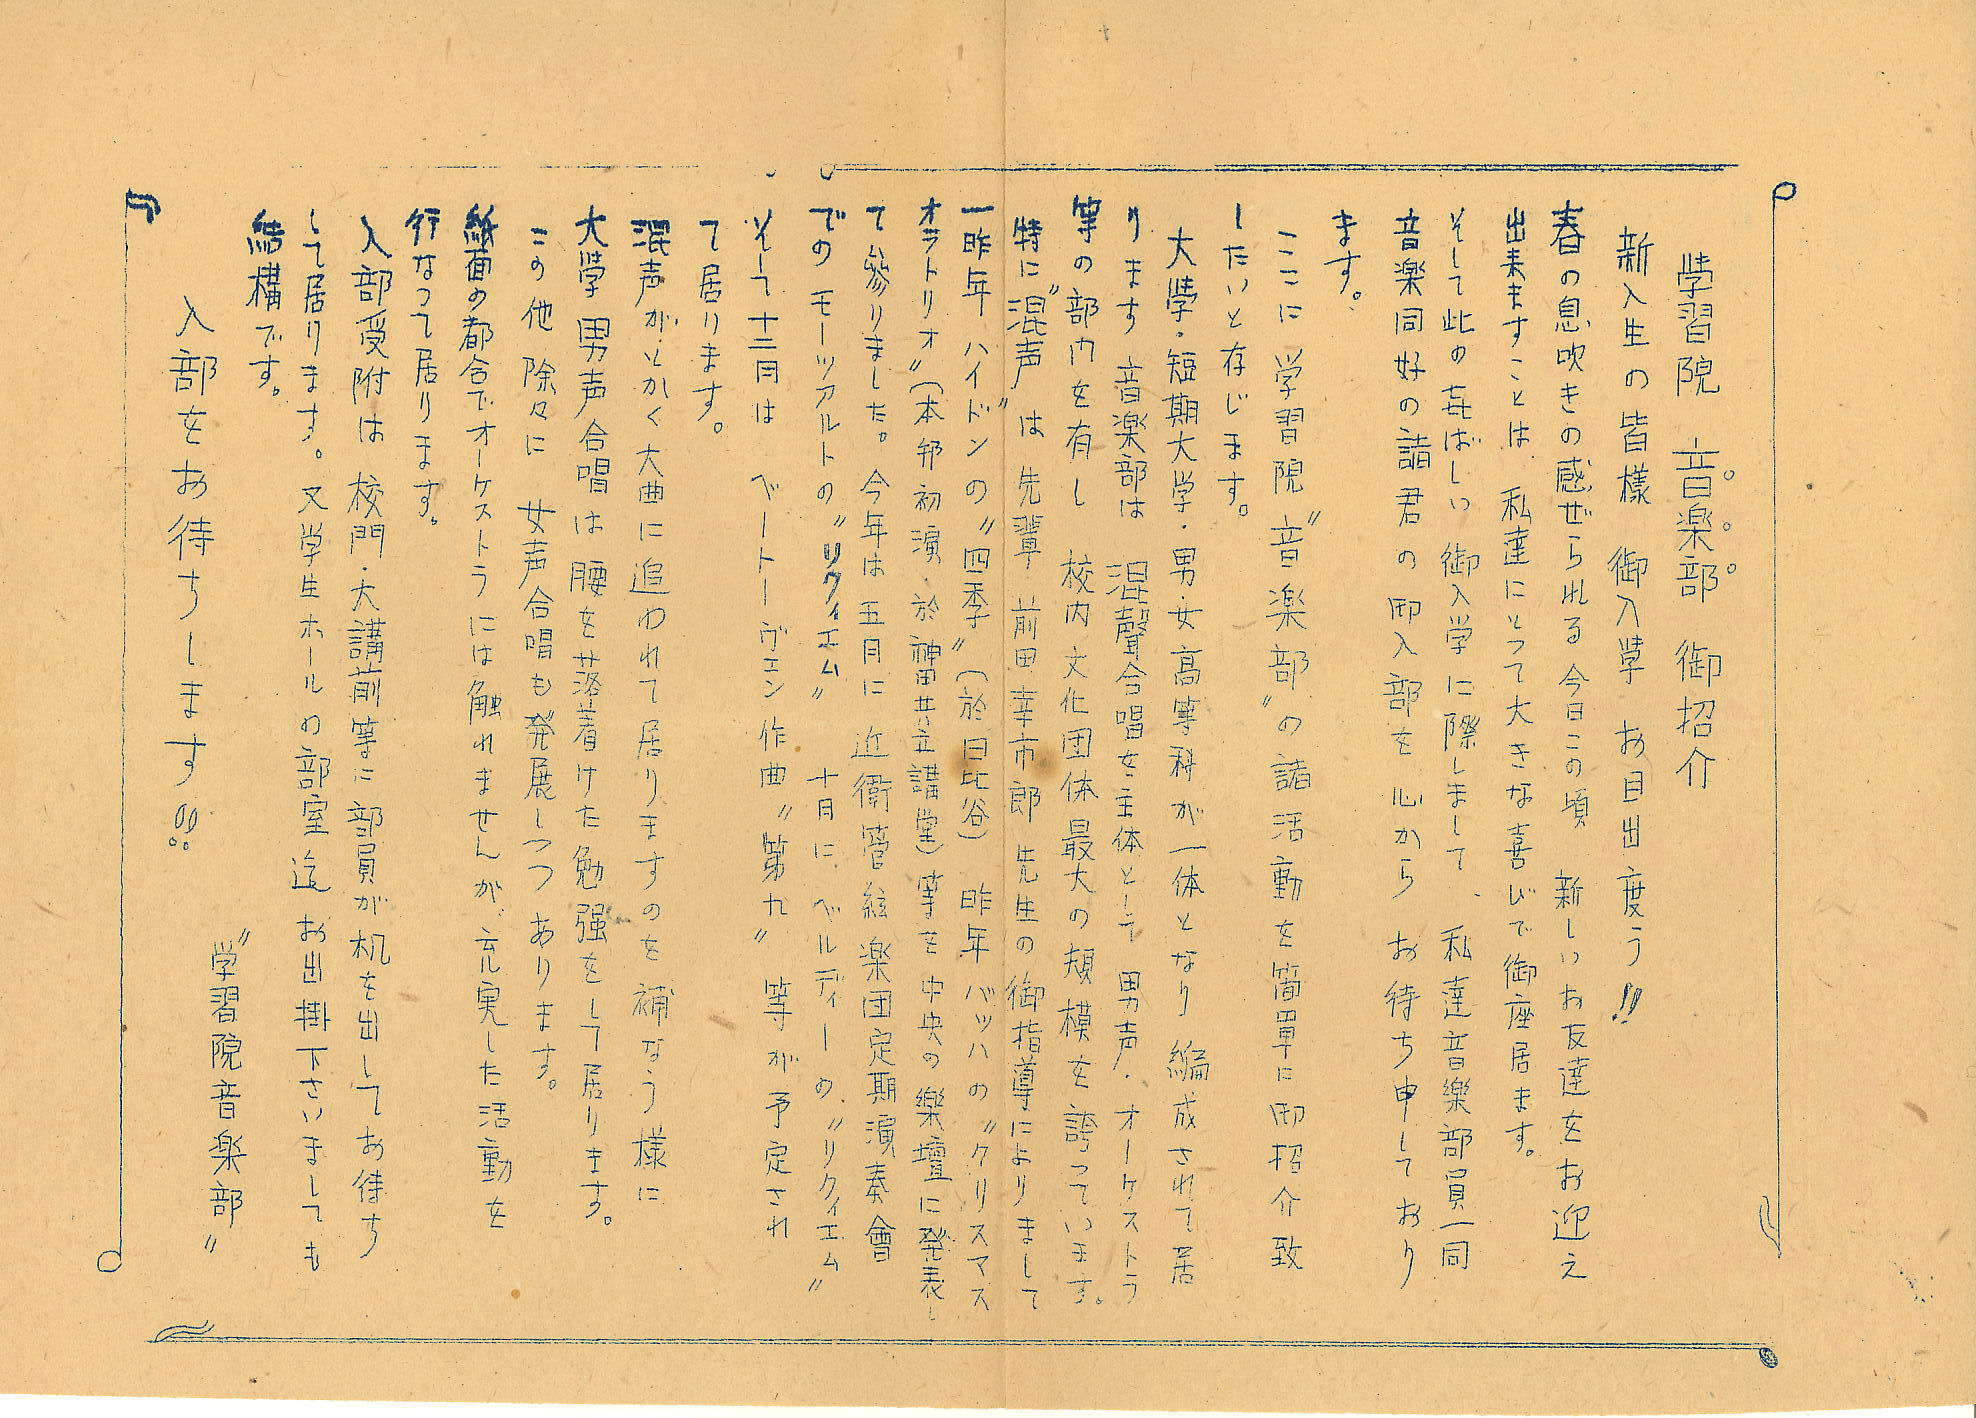 学習院　音楽部　御招介
新入生の皆様　御入学　お目出度う!!
春の息吹きの感ぜられる今日この頃　新しいお友達をお迎え
出来ますことは　私達にとって大きな喜びで御座居ます。
そして此の喜ばしい御入学に際しまして、私達音楽部員一同
音楽同好の諸君の御入部を心から　お待ち申しており
ます。
ここに　学習院〝音楽部〟の諸活動を簡単に御招介致
したいと存じます。
大学・短期大学・男・女高等科が一体となり　編成されて居
ります　音楽部は　混聲合唱を主体として　男声・オーケストラ
等の部内を有し　校内文化団体最大の規模を誇っています。
特に〝混声〟は　先輩　前田幸市郎　先生の御指導によりまして
一昨年　ハイドンの〝四季〟（於日比谷）　昨年　バッハの〝クリスマス
オラトリオ〟（本邦初演、於神田共立講堂）等を中央の樂壇に発表し
て參りました。今年は五月に　近衛管絃楽団定期演奏會
でのモーツアルトの〝リクィエム〟　十月に、ベルディーの〝リクィエム〟
そして十二月は　ベートーヴェン作曲〝第九〟等が予定され
て居ります。
混声がとかく大曲に追われて居りますのを補なう様に
大学男声合唱は腰を落着けた勉強をして居ります。
この他　除々に　女声合唱も発展しつつ　あります。
紙面の都合でオーケストラには触れませんが、充実した活動を
行なって居ります。
入部受附は　校門・大講前等に部員が机を出してお待ち
して居ります。又学生ホールの部室迄　お出掛下さいましても
結構です。
入部をお待ちします!!!
〝学習院音楽部〟